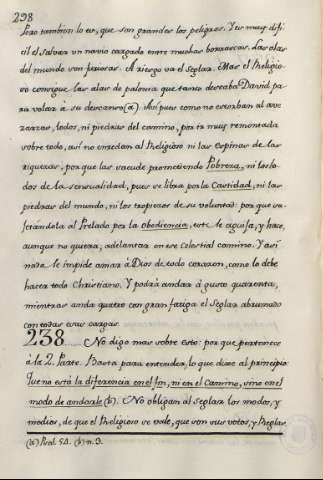 298
Pero tambien lo es, que son grandes los peligros. Y es muy difi-
cil el salvar un navio cargado entre muchas borrascas. Las olas
del mundo son furiosas. A riesgo va el Seglar. Mas el Religio-
so consigue las alas de paloma que tanto deseaba David, pa-
ra volar à su descanso (a). Asi pues como no estorban al ave
zarzas, lodos, ni piedras del camino, por ir muy remontada
sobre todo, asi no enredan al Religioso ni las espinas de las
riquezas, por que las sacude prometiendo Pobreza, ni los lo-
dos de la sensualidad, pues se libra por la Castidad, ni las
piedras del mundo, ni los tropiezos de su voluntad: por que su-
jetandola al Prelado por la Obediencia, este le aguija, y hace,
aunque no quiera, adelantar en ese celestial camino. Y asi
nada le impide amar à Dios de todo corazon, como lo debe
hacer todo Christiano. Y podrà andar à gusto quarenta,
mientras anda quatro con gran fatiga el Seglar abrumado
con todas esas cargas.
238. No digo mas sobre esto: por que pertenece
à la 2. Parte. Basta para entender, lo que dixe al principio:
Que no està la diferencia en el fin, ni en el Camino, sino en el
modo de andarle (b). No obligan al Seglar los modos, y
medios, de que el Religioso se vale, que son sus votos, y Reglas
(a) Psal. 54. (b) n. 9.